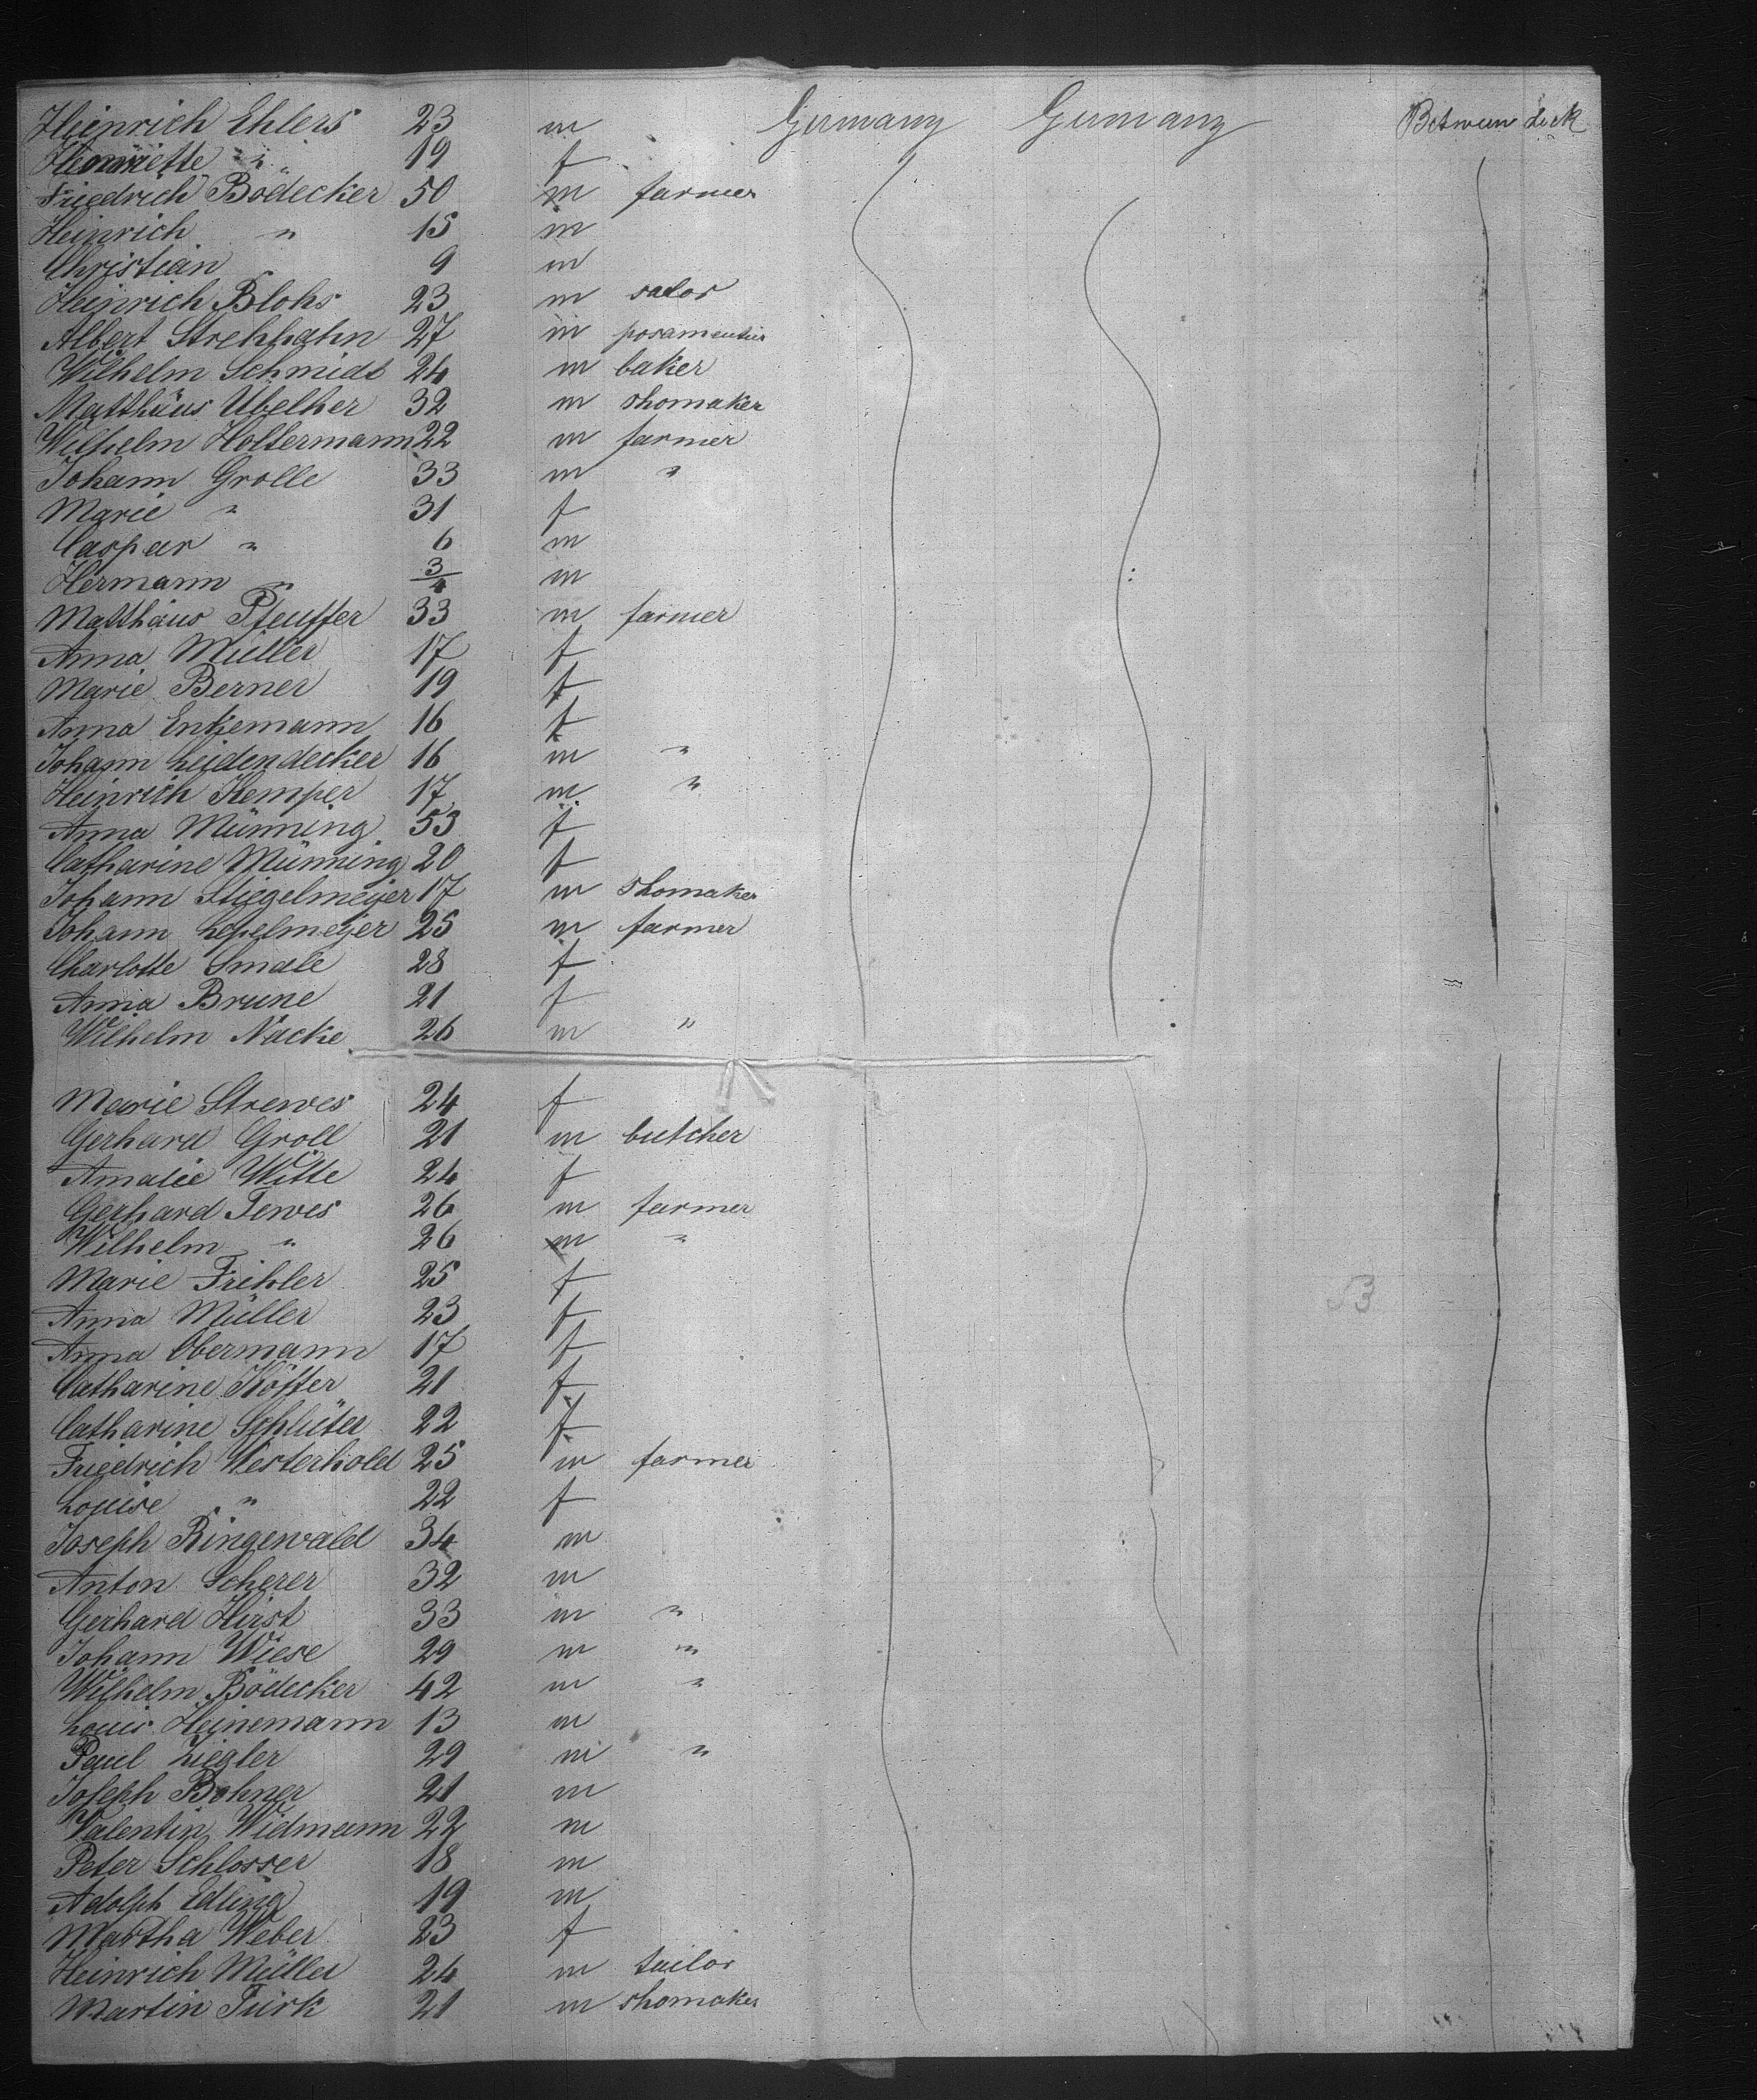 Heinrich Ehlers 23 m Germany Germany Between deck
Henriette " 19 f
Friedrich Bödecker 50 m farmer
Heinrich " 15 m
Christian 9 m
Heinrich Blohs 23 m
Albert Strehhahn 27 m posamentier
Wilhelm Schmidt 24 m baker
Matthäus Übelher 32 m shomaker
Wilhelm Holtermann 22 m farmer
Johann Grolle 33 m "
Marie " 31 f
Caspar " 6 m
Hermann " 3/4 m
Matthäus Pfeuffer 33 m farmer
Anna Müller 17 f
Marie Berner 19 f
Anna Enkemann 16 f
Johann Leidendecker 16 m "
Heinrich Kemper 17 m "
Anna Münning 53 f
Catharine Münning 20 f
Johann Stiegelmeijer 17 m shomaker
Johann 25 m farmer
Charlotte Smale 28 f
Anna Brune 21 f
Wilhelm Nacke 26 m "
Marie Strewes 24 f
Gerhard Groll 21 m butcher
Amalie Witte 24 f
Gerhard Tewes 26 m farmer
Wilhelm " 26 m "
Marie Frihler 25 f
Anna Müller 23 f
Anna Obermann 17 f
Catharine Höffer 21 f
Catharine Schlüter 22 f
Friedrich Westerhold 25 m farmer
Louise " 22 f
Joseph Ringewald 34 m
Anton Scherer 32 m
Gerhard Hirst 33 m "
Johann Wiese 29 m "
Wilhelm Bödecker 42 m "
Louis Heinemann 13 m
Paul Liegler 29 m "
Joseph Bohner 21 m
Valentin Widmann 22 m
Peter Schlosser 18 m
Adolph Edling 19 m
Martha Weber 23 f
Heinrich Müller 24 m tailor
Martin Türk 21 m shomaker